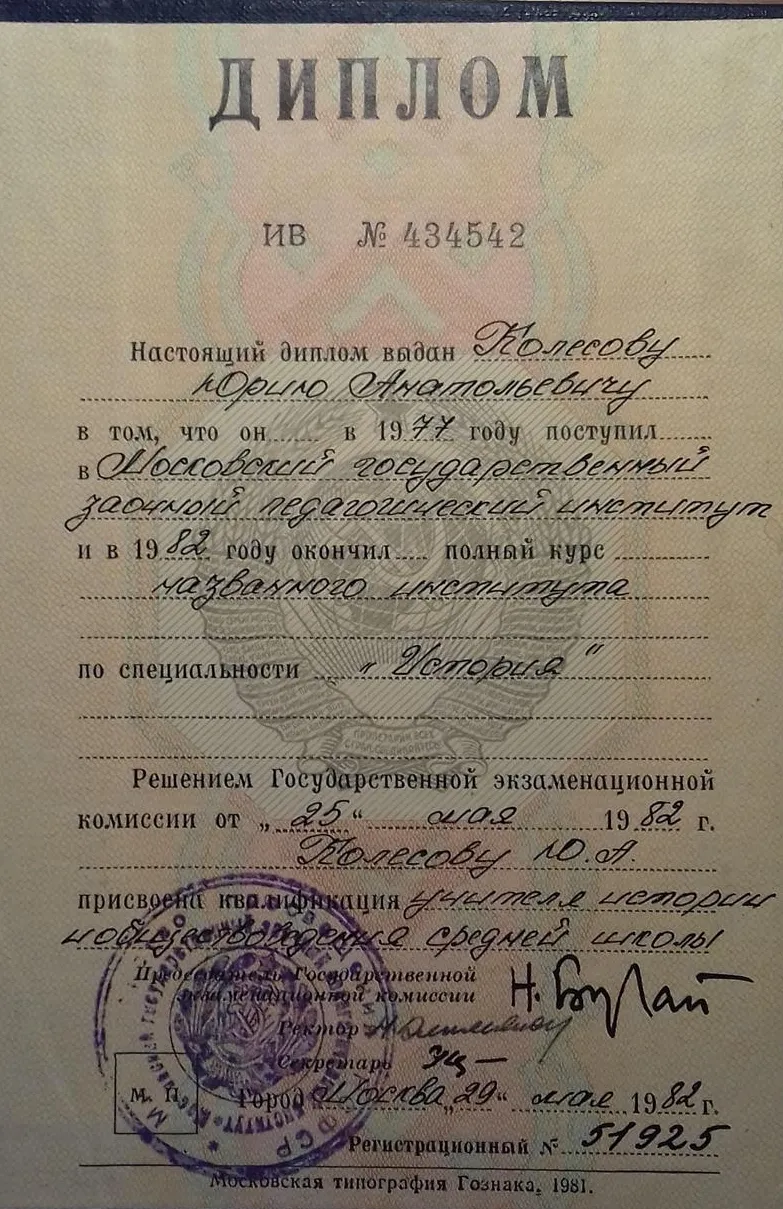 ДИПЛОМ
ИВ № 434542
Настоящий диплом выдан Колесову
Юрию Анатольевичу
в том, что он в 1977 году поступил
в Московский государственный
заочный педагогический институт
и в 1982 году окончил полный курс
названного института
по специальности „История"
ПРОЛЕТАРИИ ВСЕХ
СТРАН, СОЕДИНЯЙТЕСЬ!
Решением Государственной экзаменационной
комиссии от „25" мая 1982 г.
Колесову Ю.А.
присвоена квалификация учителя истории
и обществоведения средней школы
Председатель Государственной
экзаменационной комиссии Н. Булай
Ректор
Секретарь
М. П.
Город Москва „29" мая 1982 г.
Регистрационный № 51925
Московская типография Гознака, 1981.